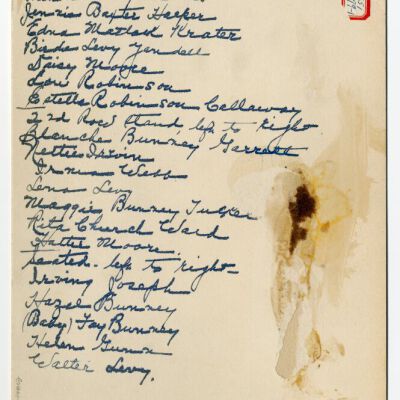 Jennie Baxter Harper
Edna Matlock Krater
Birdie Levy Yandell
Daisy Moore
Lori Robinson
Estella Robinson Callaway
2nd Row stand left to right
Blanche Bunney Garrett
Nettie Irvin
Irma Webb
Lena Levy
Maggie Bunney Tucker
Rita Church Ward
Hattie Moore.
seated - left to right -
Irving Joseph
Hazel Bunney
(Baby) Fay Bunney
Helen
Walter Levy.